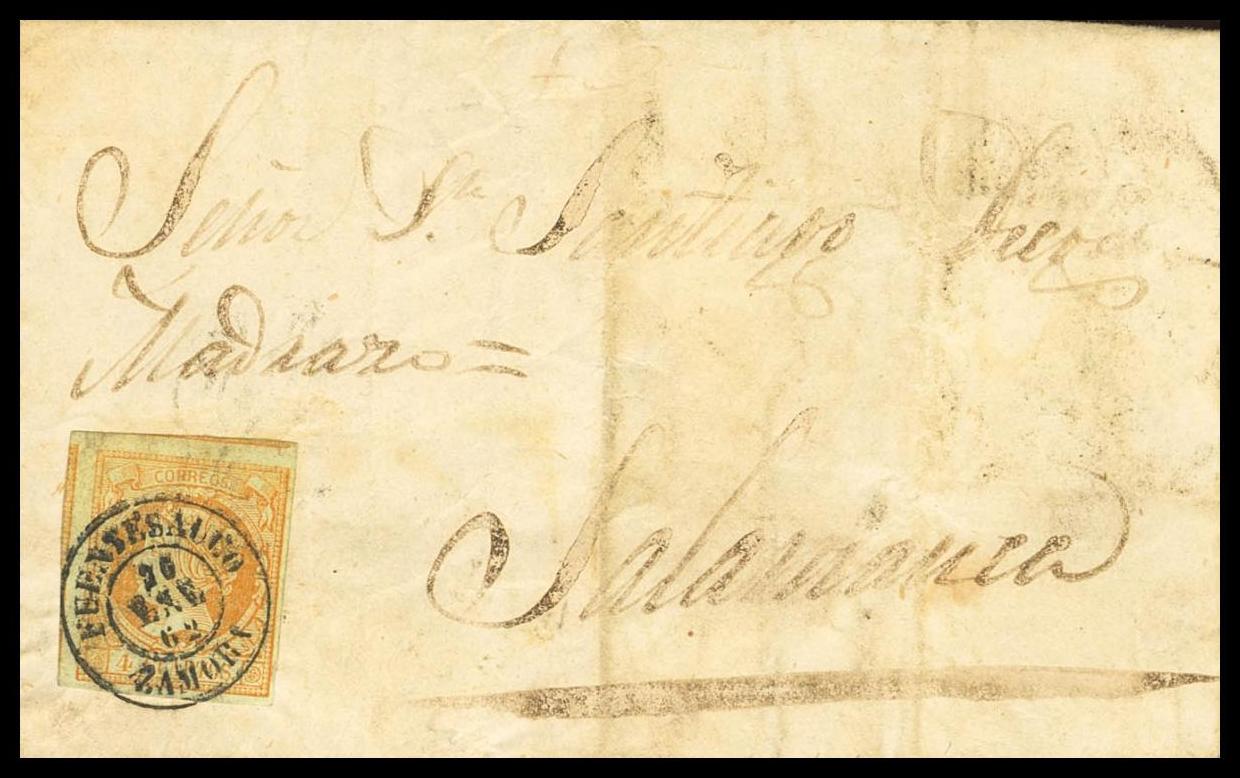 Señor Dn. Santiago Diego
Madrazo =
Salamanca
CORREOS
FUENTESAUCO
26
ENE
62
ZAMORA
4